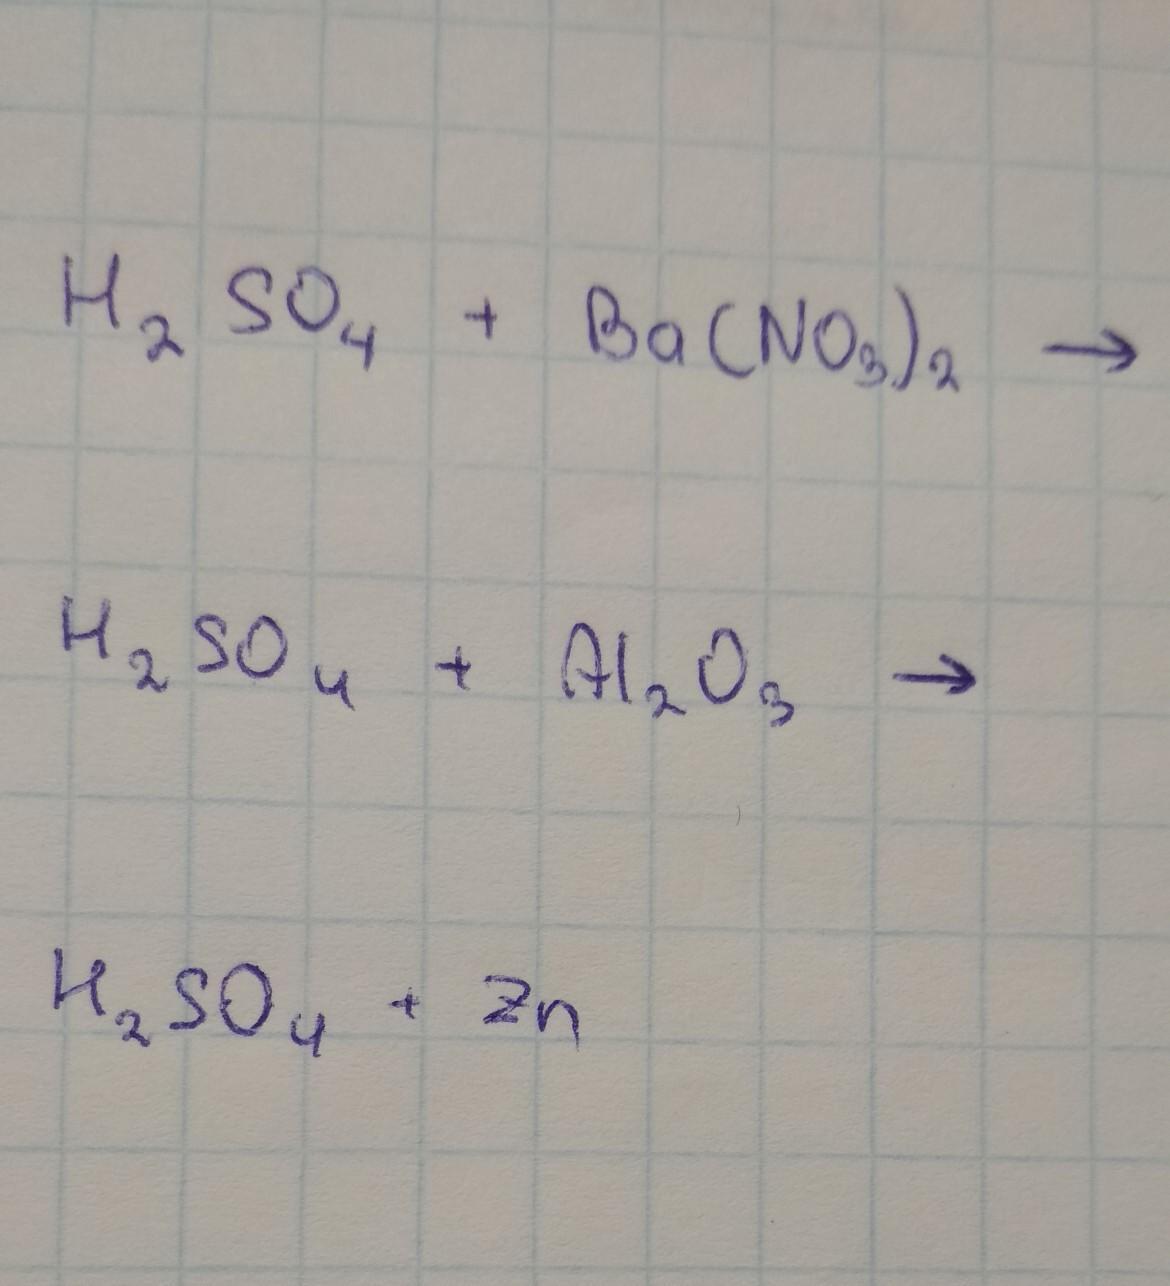 H₂SO₄ + Ba(NO₃)₂ →
H₂SO₄ + Al₂O₃ →
H₂SO₄ + Zn